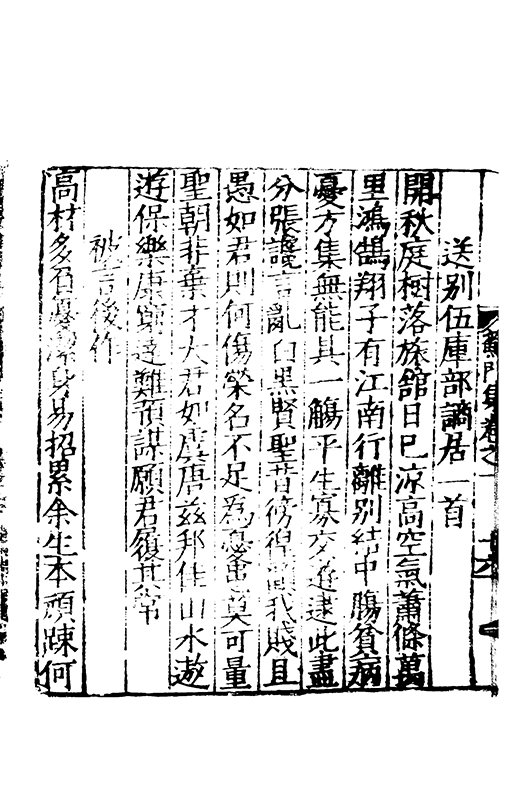 蘇門集卷之一
送别伍庫部謫居一首
開秋庭樹落旅舘日已凉高空氣蕭條萬
里鴻鵠翔子有江南行離别結中腸貧病
憂方集無能具一觴平生寡交遊逮此盡
分張讒言亂白黒賢聖昔徬徨 我賤且
愚如君則何傷榮名不足爲憂 莫可量
聖朝非棄才大君如虞唐兹邦佳山水遨
遊保樂康 逺難預謀願君履其常
被言後作
高材多 憂潔身易招累余生本頑踈何